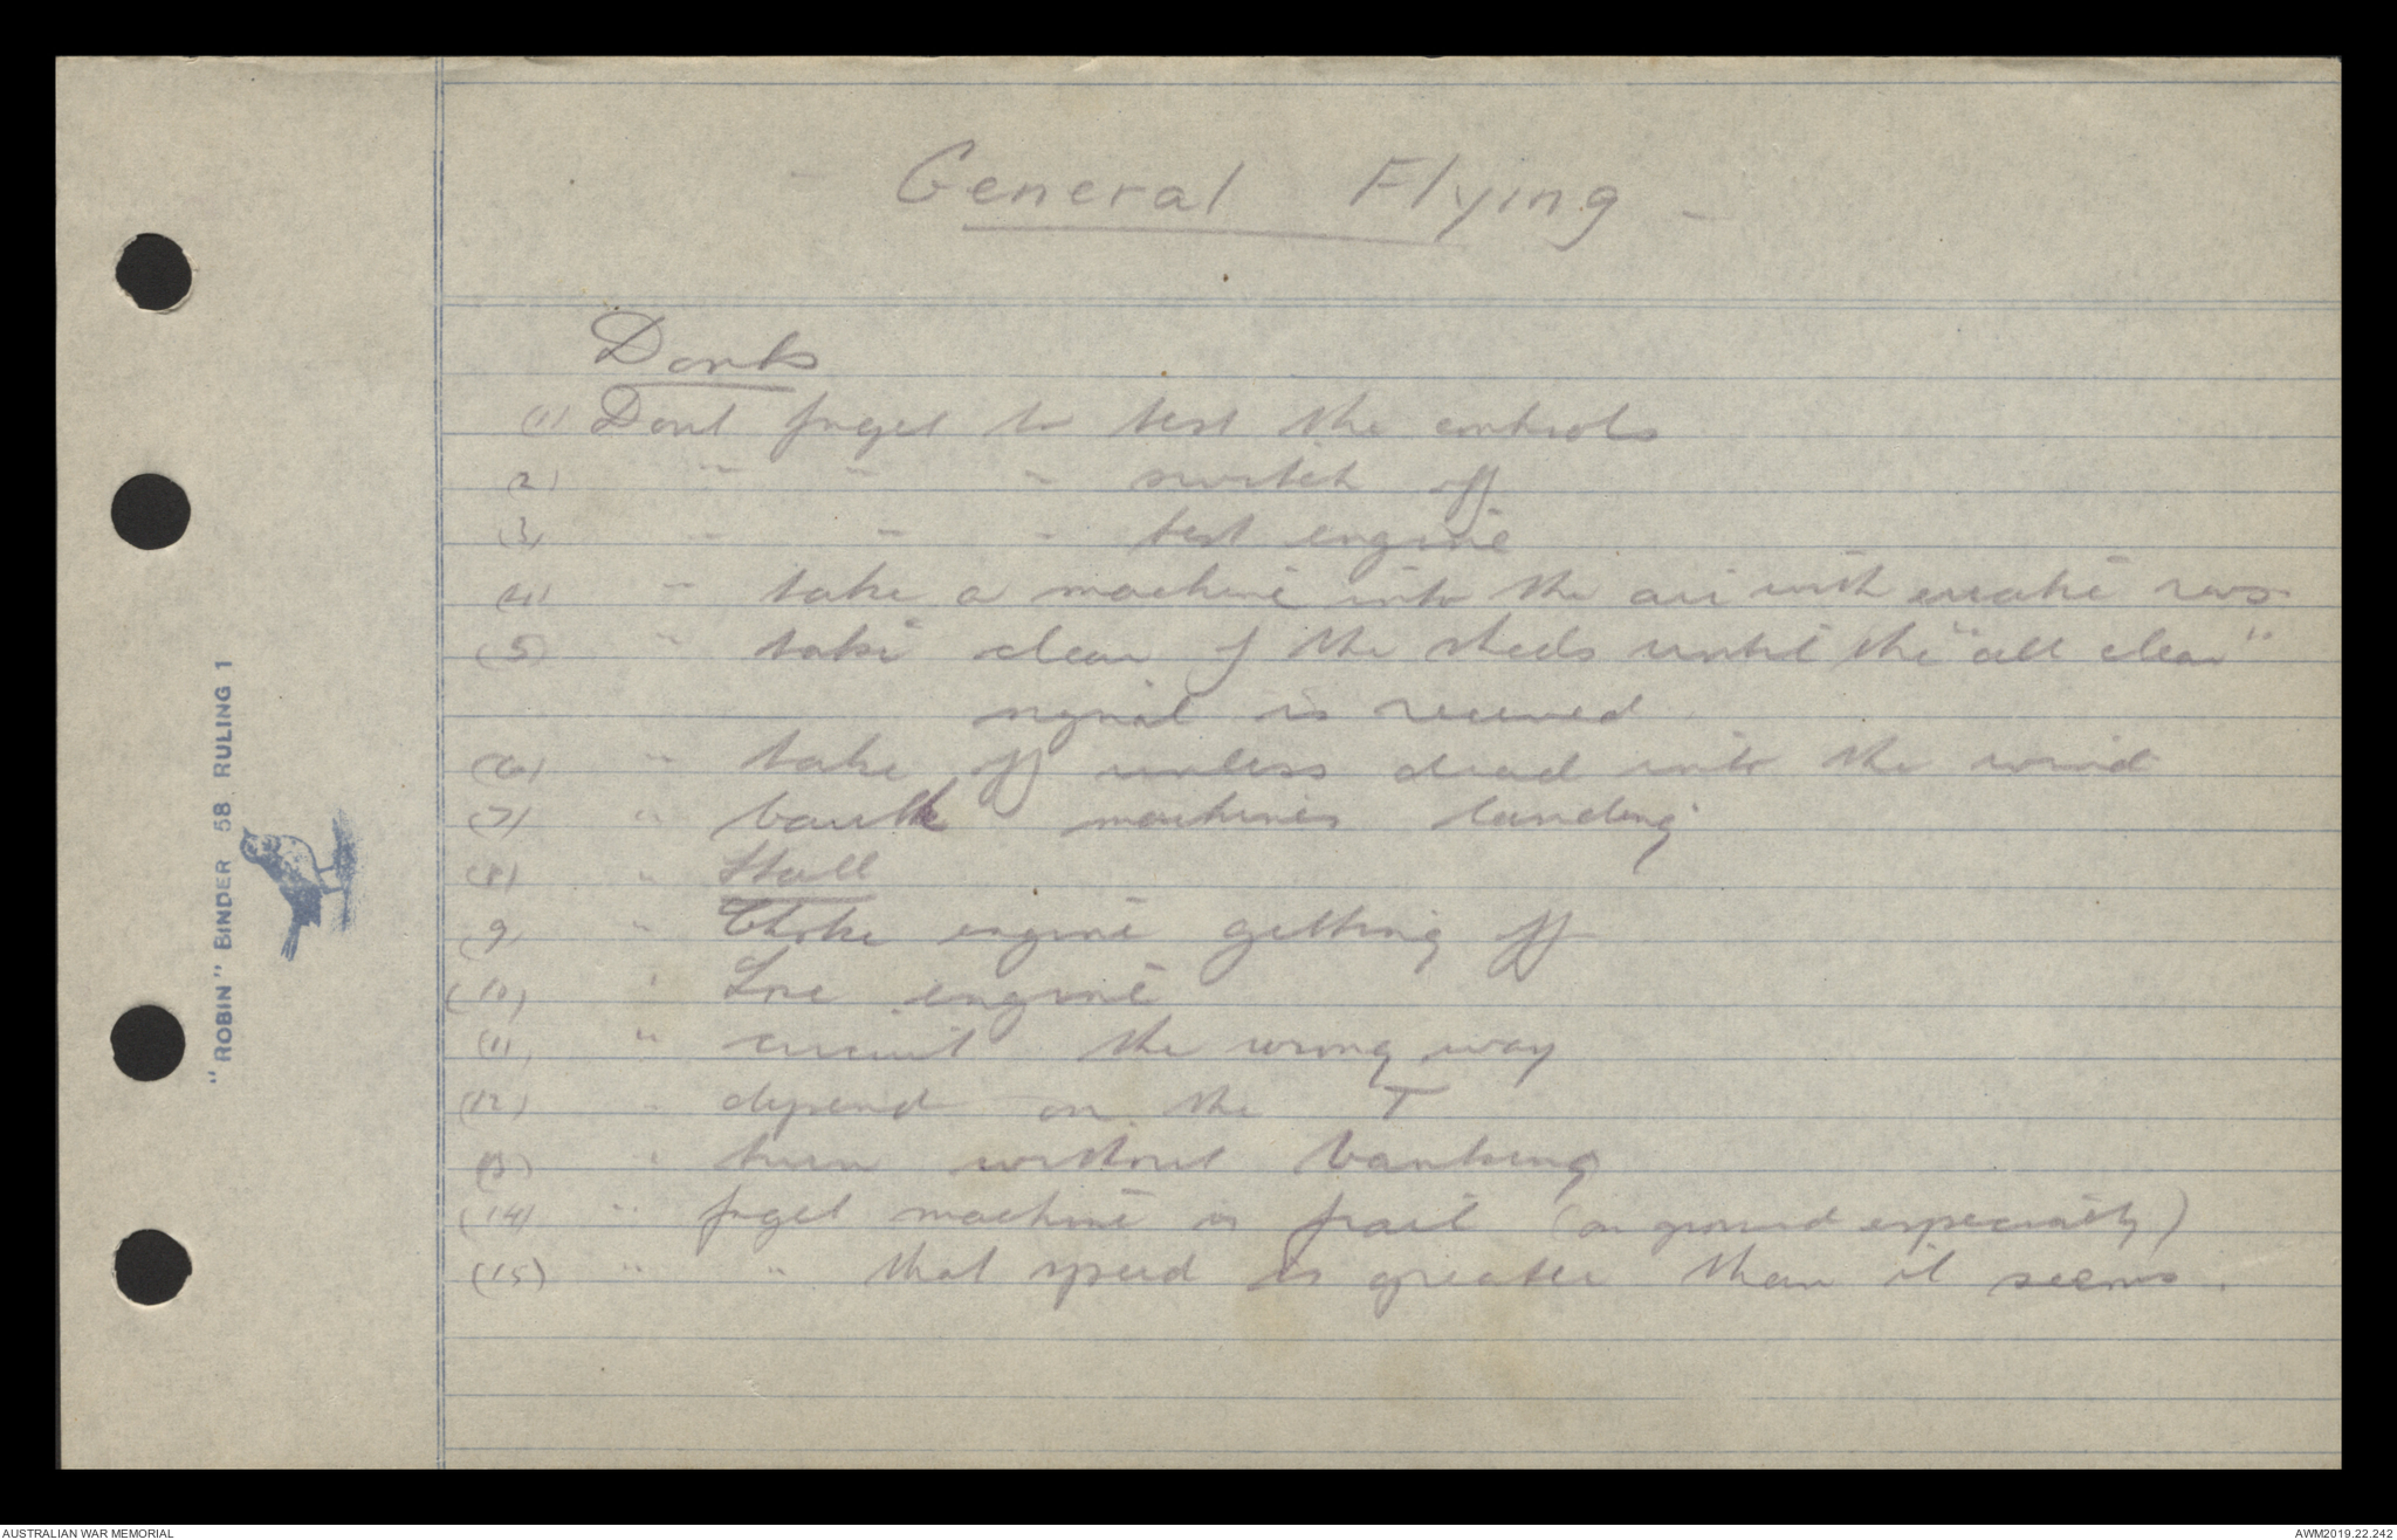 - General Flying -
Donts
(1) Dont forget to test the controls
(2) " " " switch off
(3) " " " test engine
(4) " take a machine into the air with erratic revs
(5) " taxi clear of the sheds until the "all clear"
signal is received
(6) " take off unless dead into the wind
(7) " baulk machines landing
(8) " Stall
(9) " Choke engine getting off
(10) " Lose engine
(11) " circuit the wrong way
(12) " depend on the T
(13) " turn without banking
(14) " forget machine is frail (on ground especially)
(15) " " that speed is greater than it seems.
"ROBIN" BINDER 58 RULING 1
AUSTRALIAN WAR MEMORIAL
AWM2019.22.242